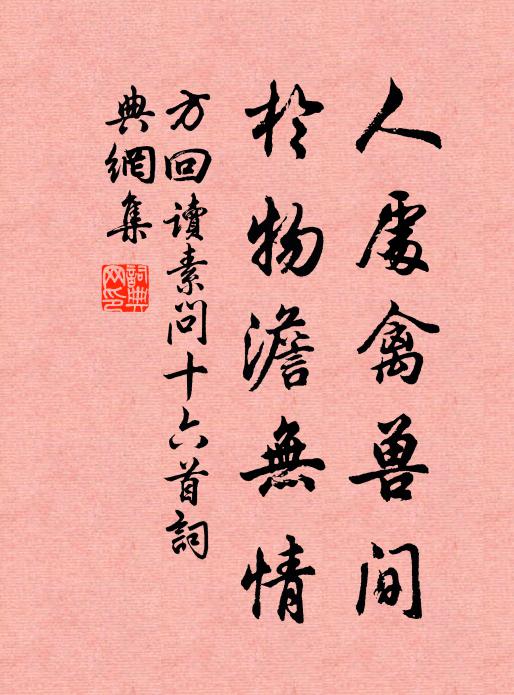 人處禽兽间
於物澹無情
方回讀素问十六首詞
典網集
詞典
网印